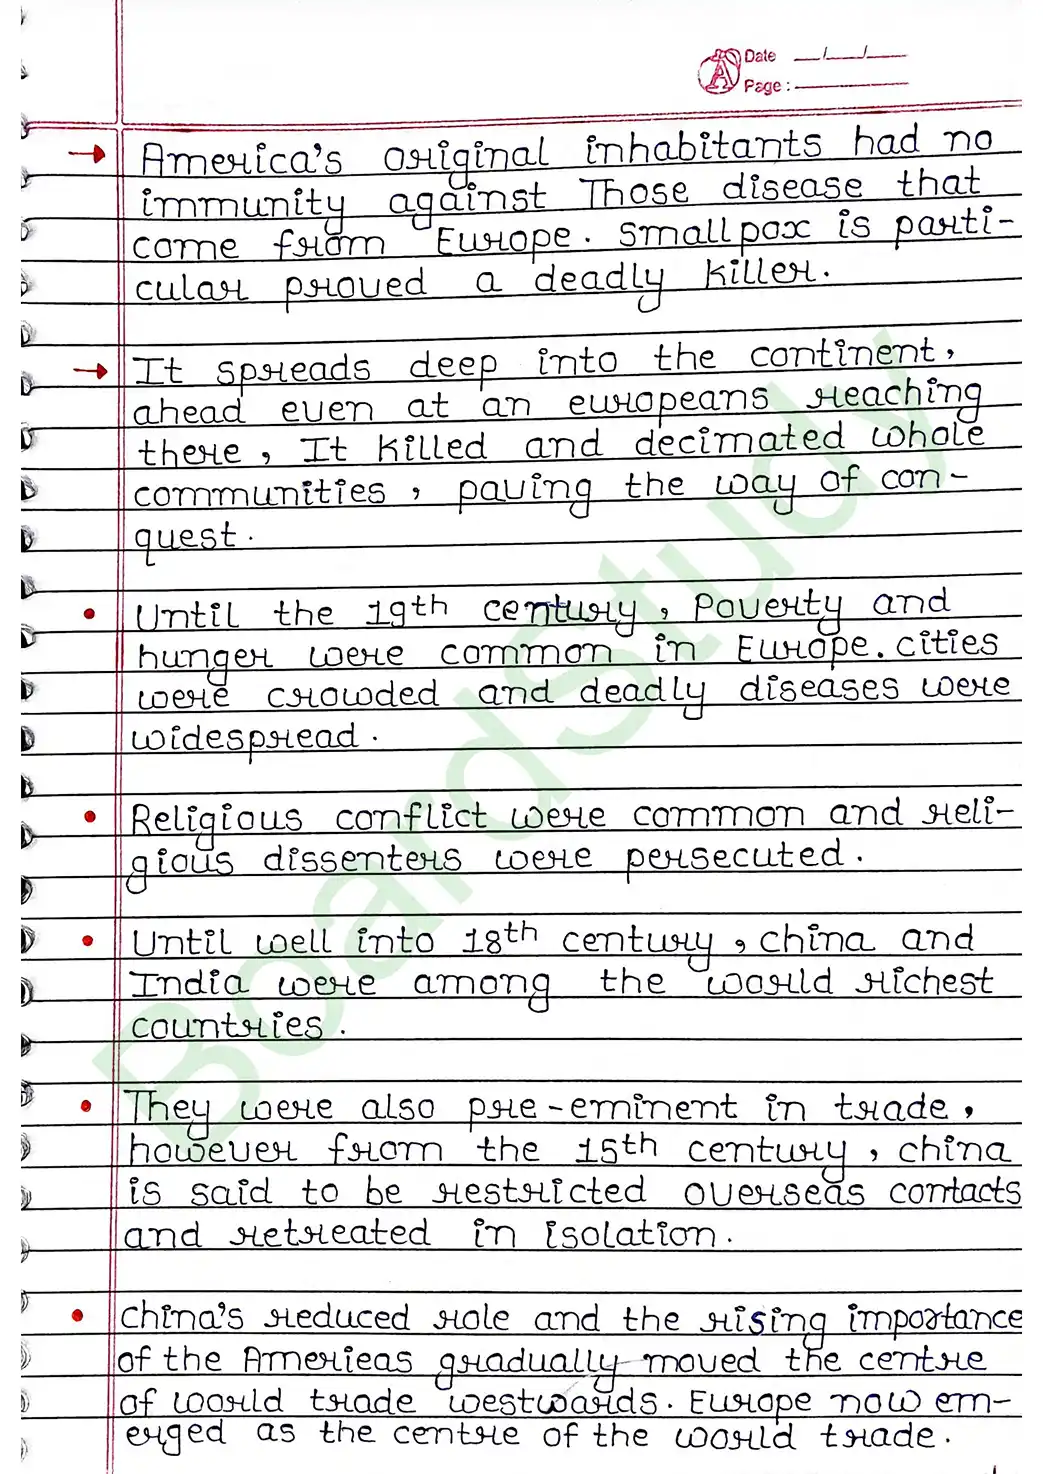 Date __/__/__
Page :
America's original inhabitants had no
immunity against Those disease that
come from Europe. Smallpox is parti-
cular proved a deadly killer.
It spreads deep into the continent,
ahead even at an europeans reaching
there, It killed and decimated whole
communities, paving the way of con-
quest.
Until the 19th century, Poverty and
hunger were common in Europe. cities
were crowded and deadly diseases were
widespread.
Religious conflict were common and reli-
gious dissenters were persecuted.
Until well into 18th century, china and
India were among the world richest
countries.
They were also pre-eminent in trade,
however from the 15th century, china
is said to be restricted overseas contacts
and retreated in isolation.
china's reduced role and the rising importance
of the Amerieas gradually moved the centre
of world trade westwards. Europe now em-
erged as the centre of the world trade.
BoardStudy